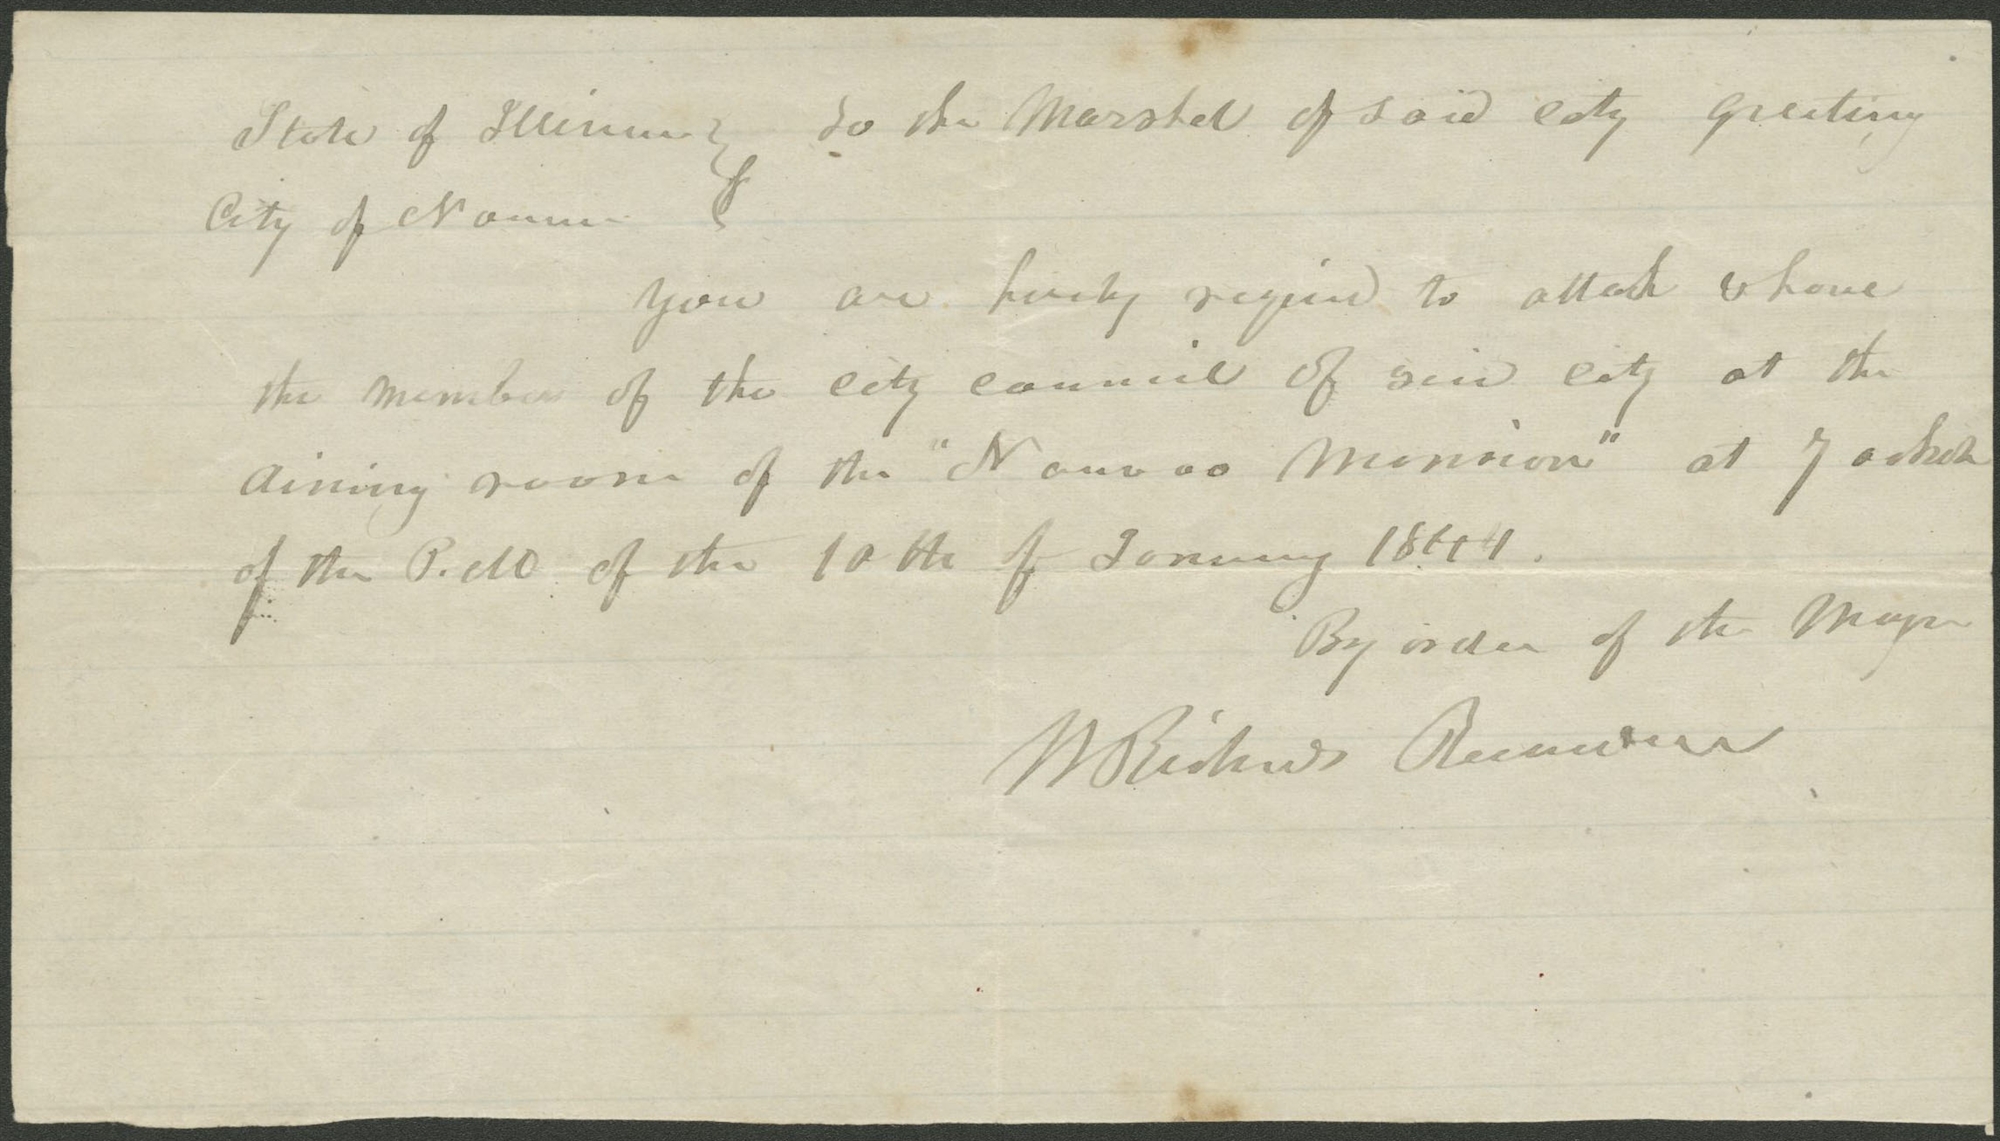 State of Illinois } To the Marshel of said city Greeting
City of Nauvoo }
you are hereby requird to attach & have
the members of the city council of said city at the
dining room of the "Nauvoo Mansion" at 7 oclock
of the P.M of the 10th of January 1844.
By order of the Mayor
W Richards Recorder